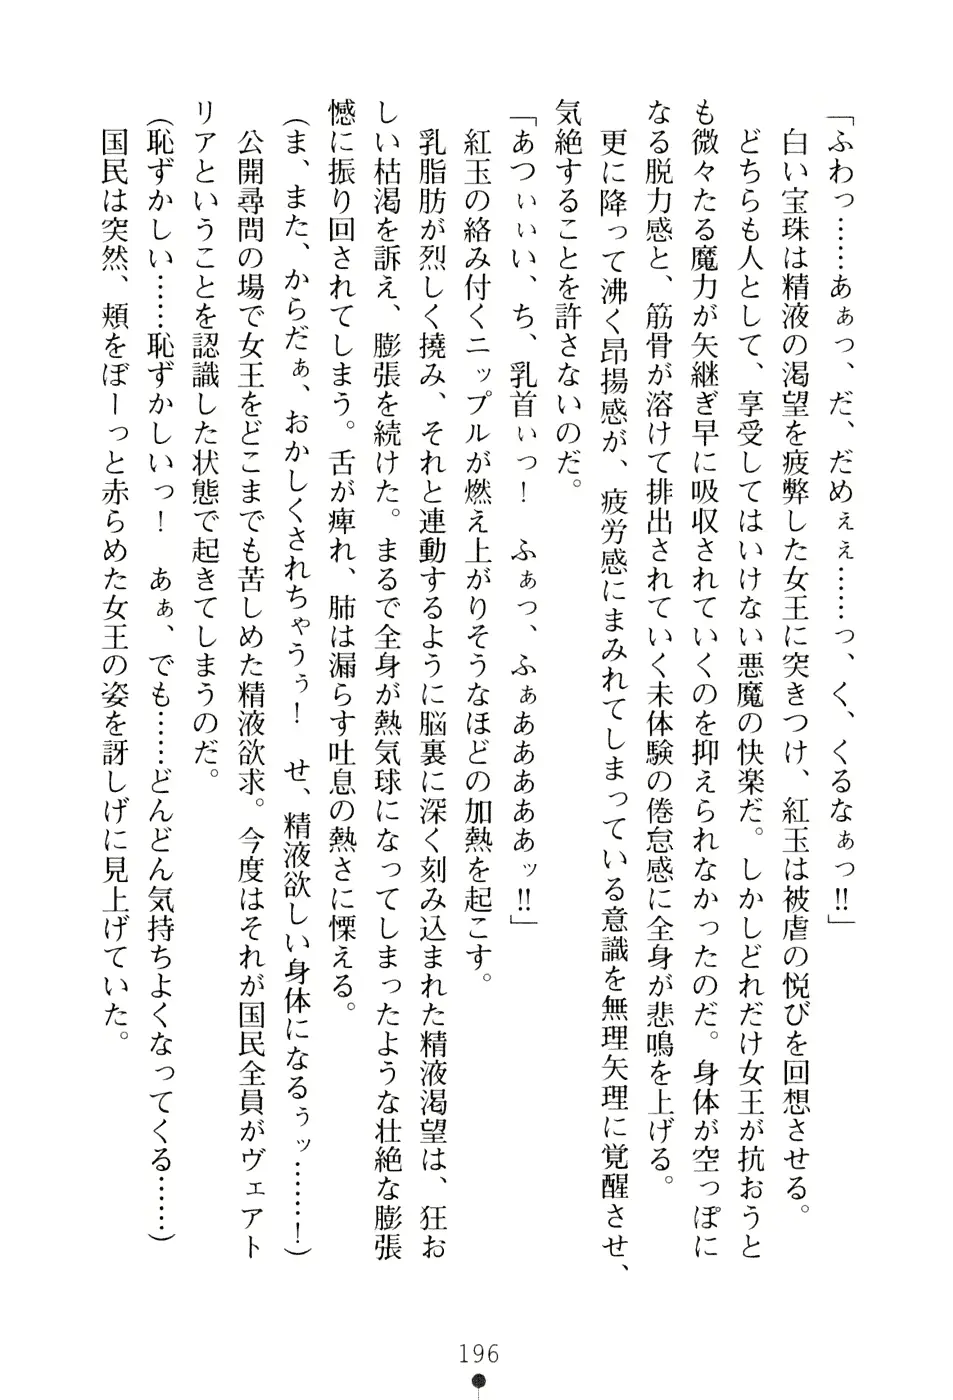 「ふわっ……あぁっ、だ、だめぇぇ……っ、く、くるなぁっ‼」
　白い宝珠は精液の渇望を疲弊した女王に突きつけ、紅玉は被虐の悦びを回想させる。
　どちらも人として、享受してはいけない悪魔の快楽だ。しかしどれだけ女王が抗おうと
も微々たる魔力が矢継ぎ早に吸収されていくのを抑えられなかったのだ。身体が空っぽに
なる脱力感と、筋骨が溶けて排出されていく未体験の倦怠感に全身が悲鳴を上げる。
　更に降って沸く昂揚感が、疲労感にまみれてしまっている意識を無理矢理に覚醒させ、
気絶することを許さないのだ。
「あつぃぃい、ち、乳首ぃっ！　ふぁっ、ふぁああああッ‼」
　紅玉の絡み付くニップルが燃え上がりそうなほどの加熱を起こす。
　乳脂肪が烈しく撓み、それと連動するように脳裏に深く刻み込まれた精液渇望は、狂お
しい枯渇を訴え、膨張を続けた。まるで全身が熱気球になってしまったような壮絶な膨張
憾に振り回されてしまう。舌が痺れ、肺は漏らす吐息の熱さに慄える。
（ま、また、からだぁ、おかしくされちゃうぅ！　せ、精液欲しい身体になるぅッ……！）
　公開尋問の場で女王をどこまでも苦しめた精液欲求。今度はそれが国民全員がヴェアト
リアということを認識した状態で起きてしまうのだ。
（恥ずかしい……恥ずかしいっ！　あぁ、でも……どんどん気持ちよくなってくる……）
　国民は突然、頬をぼーっと赤らめた女王の姿を訝しげに見上げていた。
196